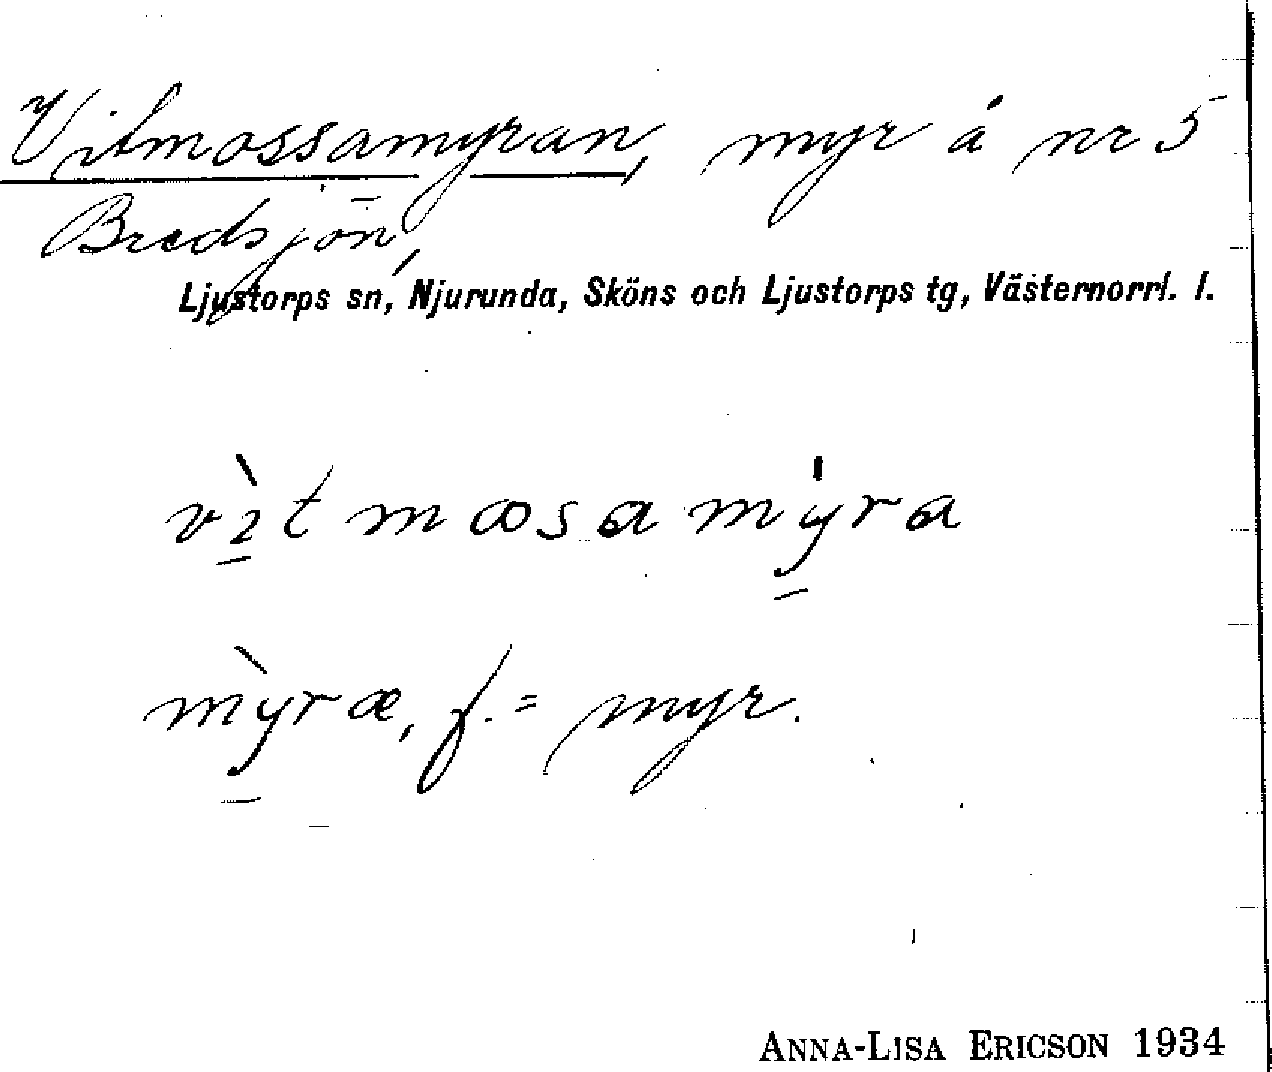 Vitmossamyran, myr å nr 5
Bredsjön,
Ljustorps sn, Njurunda, Sköns och Ljustorps tg, Västernorrl. l.
vìtmosamýra
mỳræ, f. = myr.
ANNA-LISA ERICSON 1934